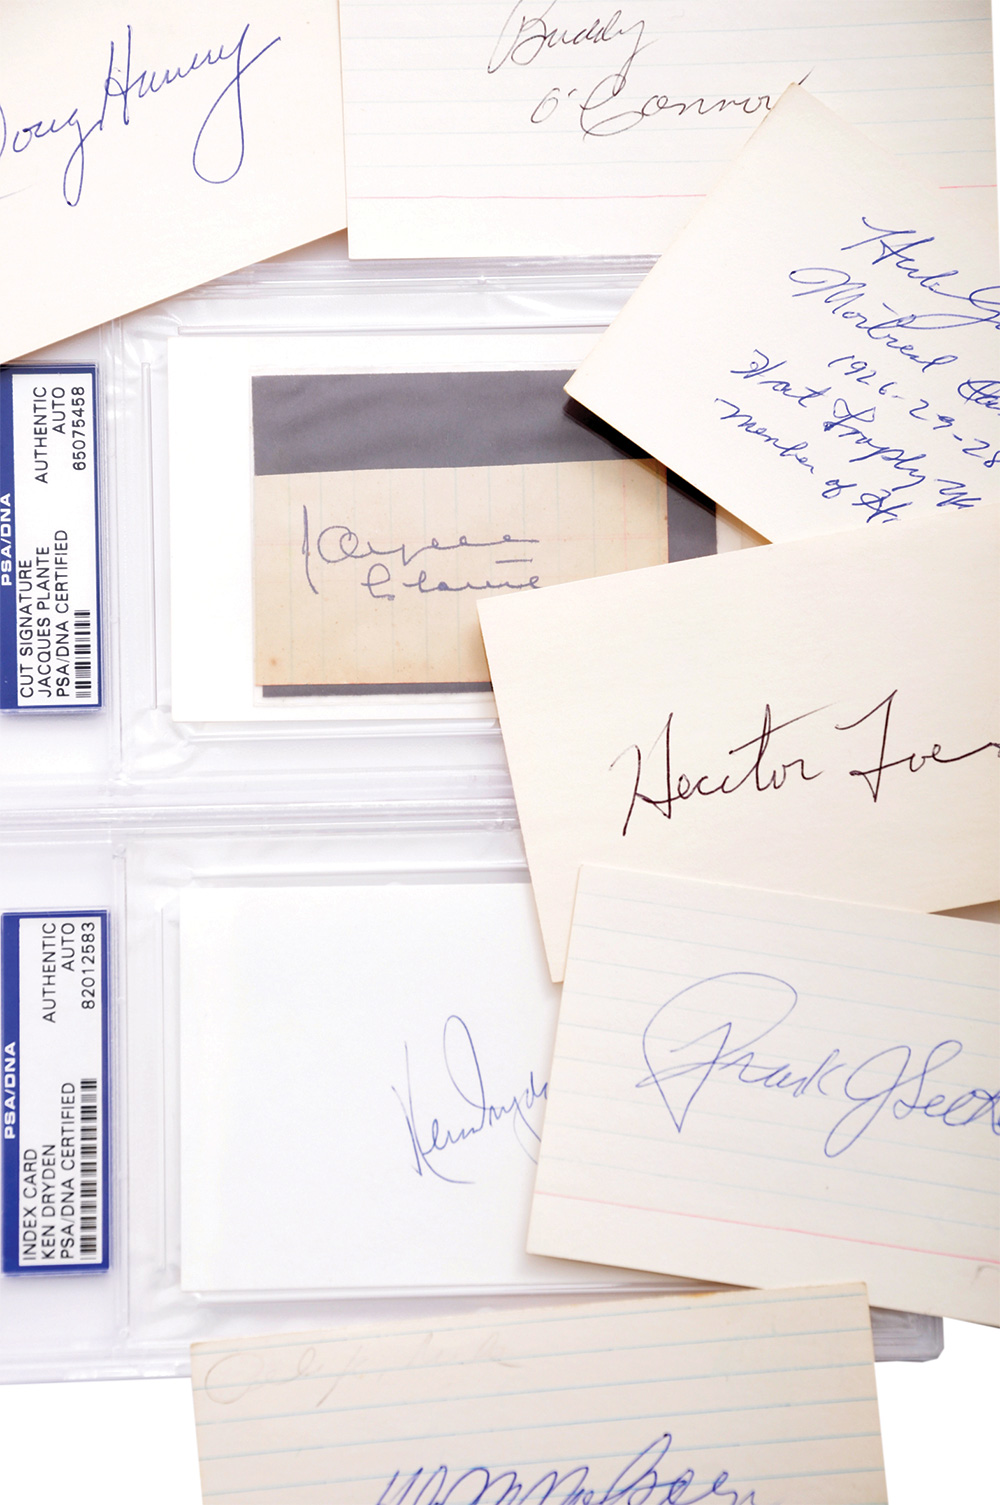 Doug Harvey
Buddy
O'Connor
Montreal
1926-27-28
Hart Trophy
Member of
PSA/DNA
CUT SIGNATURE
JACQUES PLANTE
PSA/DNA CERTIFIED
AUTHENTIC
AUTO
65075458
Jacques
Plante
Hector Toe
PSA/DNA
INDEX CARD
KEN DRYDEN
PSA/DNA CERTIFIED
AUTHENTIC
AUTO
82012583
Ken Dryde
Frank J Sel